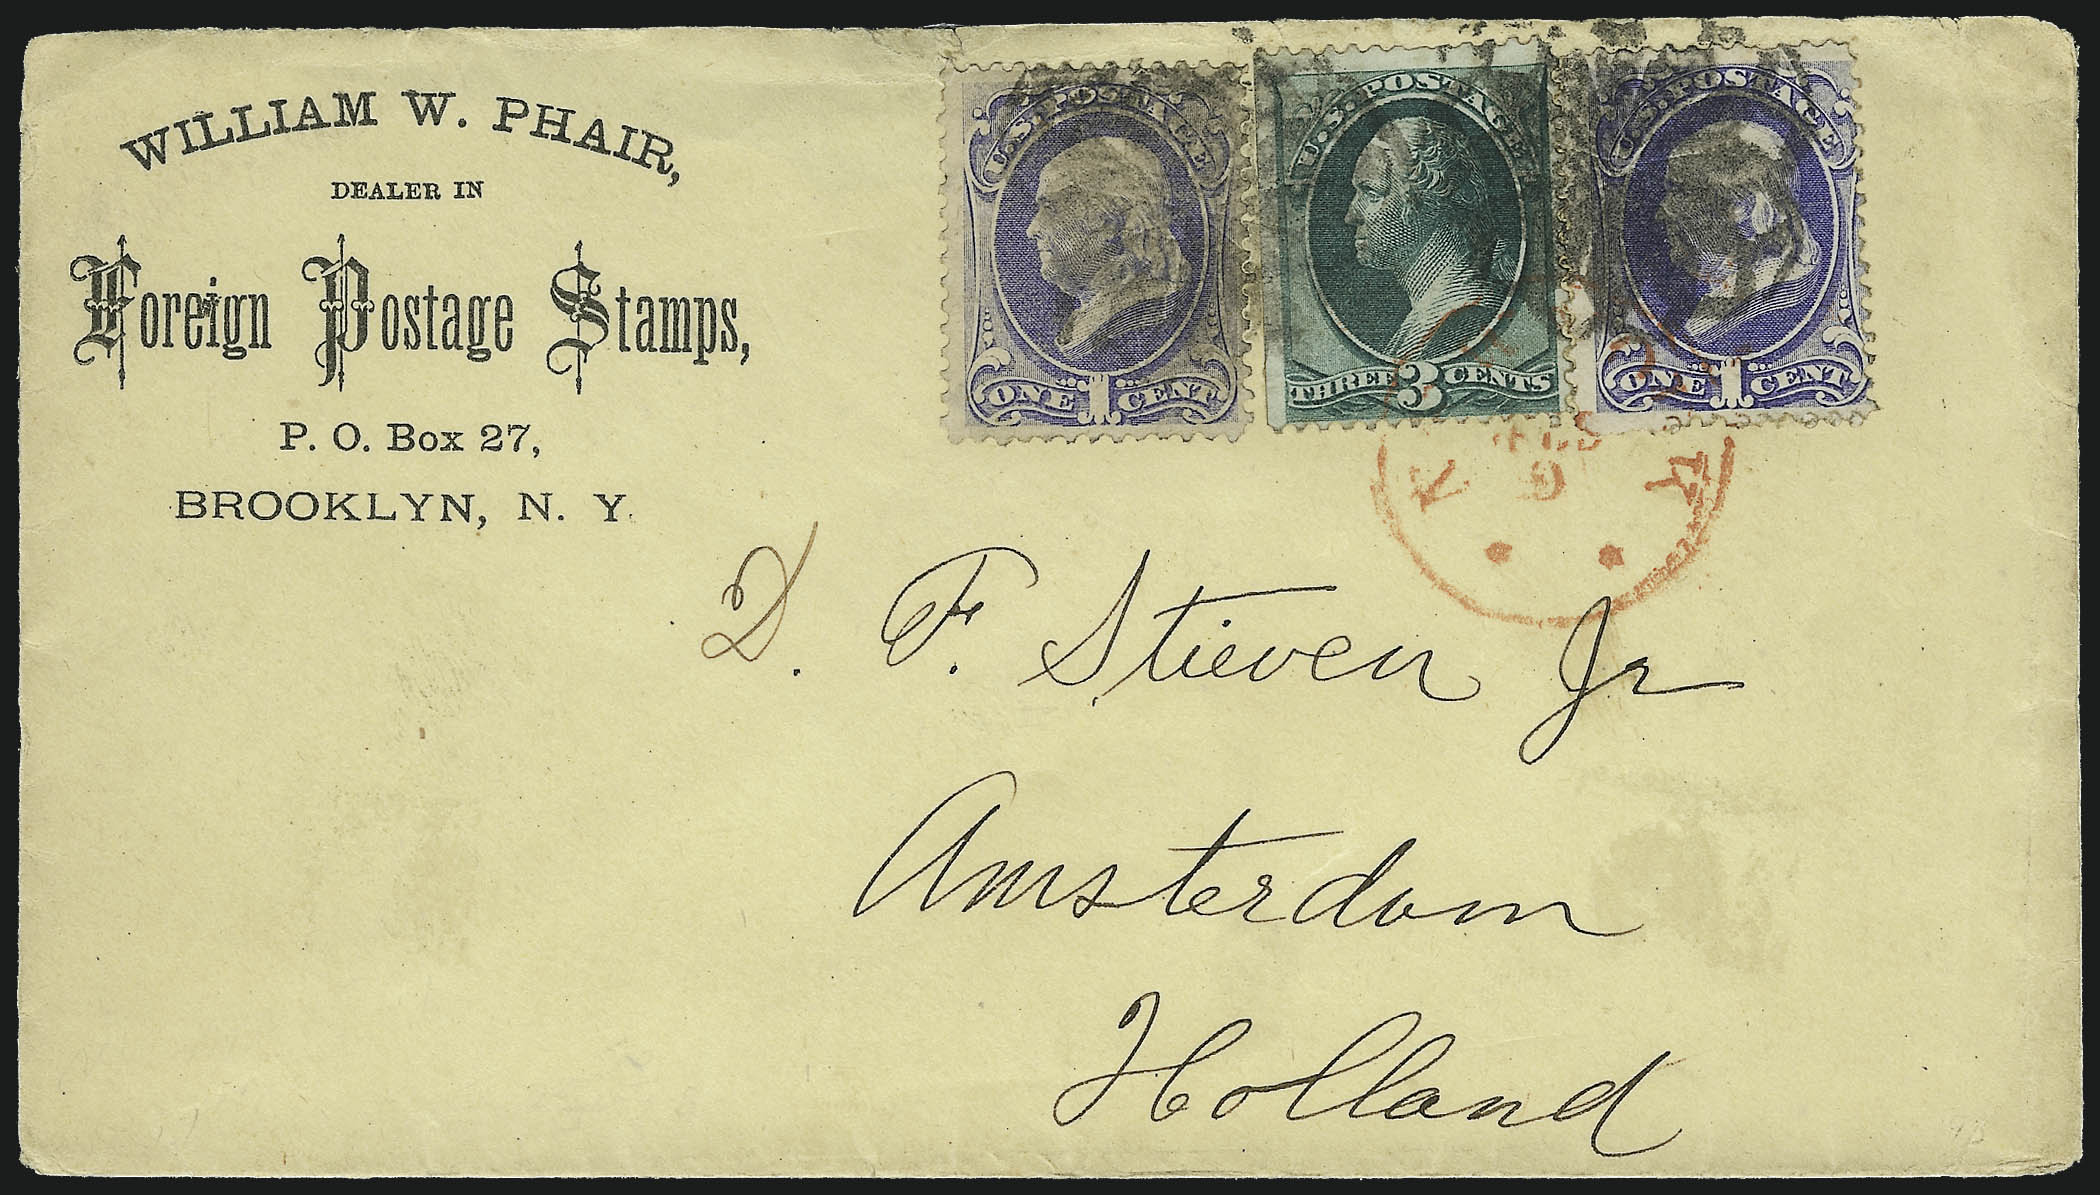 WILLIAM W. PHAIR,
DEALER IN
Foreign Postage Stamps,
P. O. Box 27,
BROOKLYN, N. Y.
U.S. POSTAGE
ONE 1 CENT
U.S. POSTAGE
THREE 3 CENTS
U.S. POSTAGE
ONE 1 CENT
D. F. Stieven Jr
Amsterdam
Holland